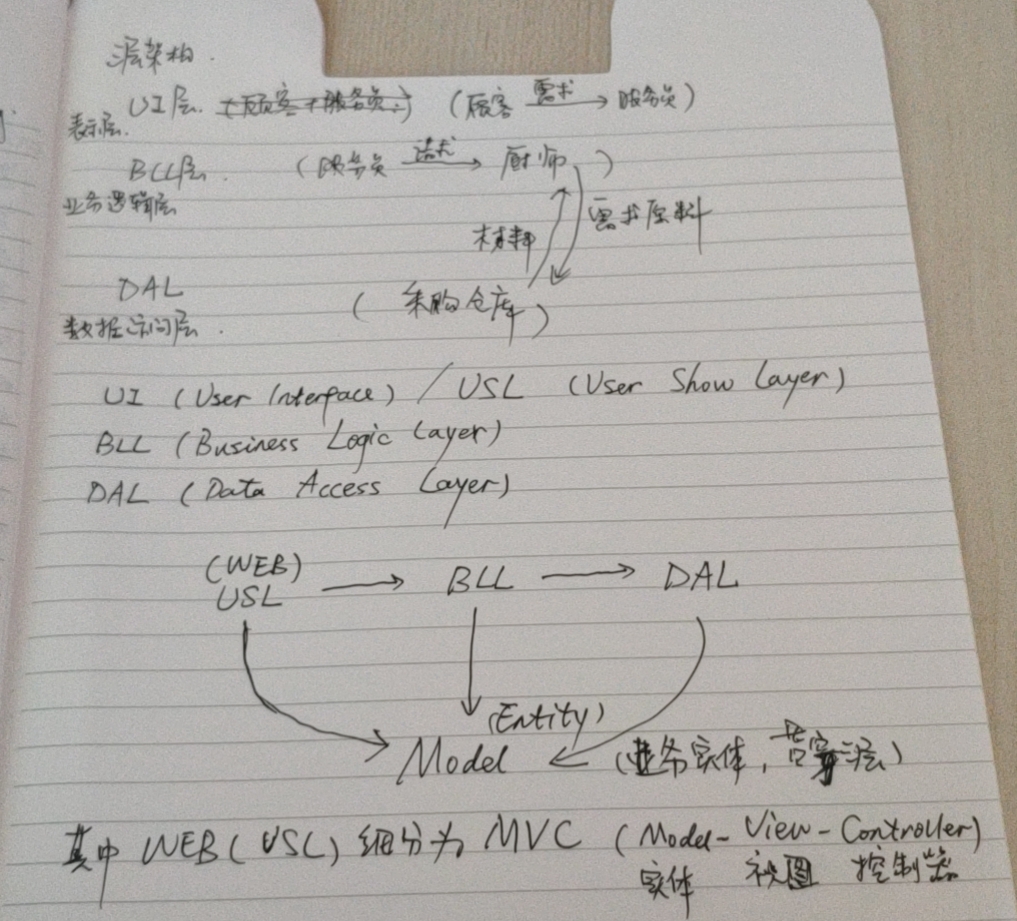 三层架构.
UI层. (顾客 需求 服务员)
表示层.
BLL层. (服务员 请求 厨师)
业务逻辑层
材料 需求原料
DAL (采购仓库)
数据访问层.
UI (User Interface) / USL (User Show Layer)
BLL (Business Logic Layer)
DAL (Data Access Layer)
(WEB)
USL → BLL → DAL
(Entity)
Model (业务实体, 贯穿三层)
其中 WEB(USL) 细分为 MVC (Model-View-Controller)
实体 视图 控制器